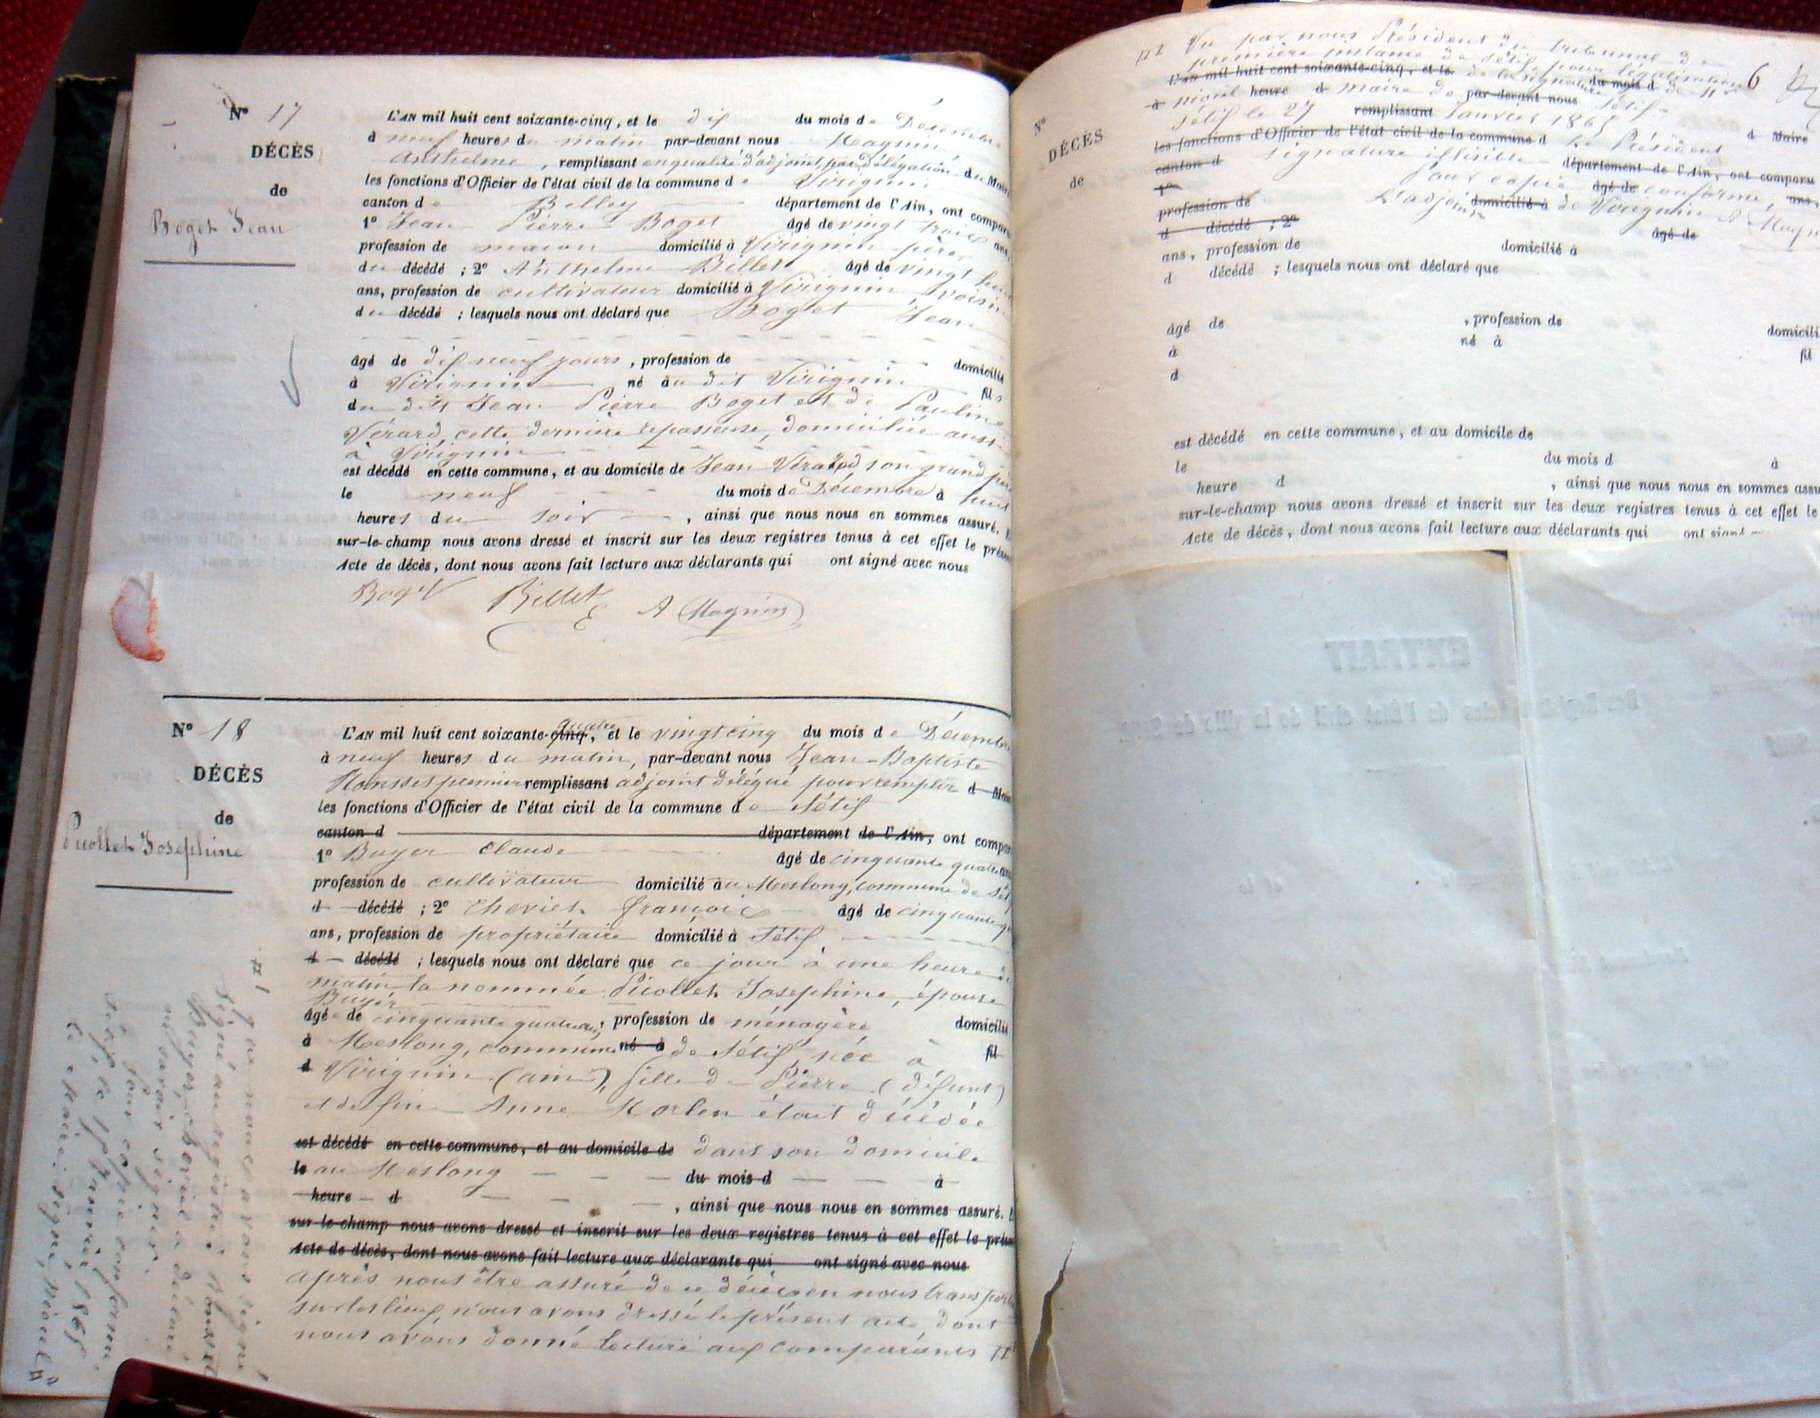 N° 17
DÉCÈS
de
Boget Jean
L'AN mil huit cent soixante-cinq, et le dix du mois de Décembre
à neuf heures du matin par-devant nous Magnin
Anthelme, remplissant en qualité d'adjoint par délégation du Maire
les fonctions d'Officier de l'état civil de la commune de Virignin
canton de Belley département de l'Ain, ont comparu
1° Jean Pierre Boget âgé de vingt trois ans,
profession de maçon domicilié à Virignin père
du décédé ; 2° Anthelme Billet âgé de vingt
ans, profession de cultivateur domicilié à Virignin, voisin
du décédé ; lesquels nous ont déclaré que Boget Jean
âgé de dix neuf jours, profession de domicilié
à Virignin né au dit Virignin fils
du dit Jean Pierre Boget et de Pauline
Vérard, cette dernière repasseuse, domiciliée aussi
à Virignin
est décédé en cette commune, et au domicile de Jean Vérard son grand père
le neuf du mois de Décembre à huit
heures du soir, ainsi que nous nous en sommes assuré.
sur-le-champ nous avons dressé et inscrit sur les deux registres tenus à cet effet le présent
Acte de décès, dont nous avons fait lecture aux déclarants qui ont signé avec nous
Boget Billet A Magnin
N° 18
DÉCÈS
de
Picollet Josephine
L'AN mil huit cent soixante-cinq quatre, et le vingt cinq du mois de Décembre
à neuf heures du matin, par-devant nous Jean-Baptiste
premier remplissant adjoint délégué pour remplir d Maire
les fonctions d'Officier de l'état civil de la commune de Sétif
canton d département de l'Ain, ont comparu
1° Buyer Claude âgé de cinquante quatre ans
profession de cultivateur domicilié au Meslong, commune de Sétif
d décédé ; 2° Cheviet françois âgé de cinquante
ans, profession de propriétaire domicilié à Sétif
d décédé ; lesquels nous ont déclaré que ce jour à une heure du
matin la nommée Picollet Josephine, épouse
Buyer
âgé de cinquante quatre ans, profession de ménagère domicilié
à Meslong, commune né à de Sétif, née à fil
d Virignin (ain), fille de Pierre (défunt)
et de feue Anne Morlen était décédée
est décédé en cette commune, et au domicile de dans son domicile
le au Meslong du mois d à
heure d, ainsi que nous nous en sommes assuré.
sur-le-champ nous avons dressé et inscrit sur les deux registres tenus à cet effet le présent
Acte de décès, dont nous avons fait lecture aux déclarants qui ont signé avec nous
après nous être assuré de ce décès en nous transportant
sur les lieux, nous avons dressé le présent acte, dont
nous avons donné lecture aux comparants
que nous avons signé
Signé au registre
Buyer, Cheviet a déclaré
ne savoir signer.
Pour copie conforme
Sétif le Janvier 1865
Le Maire signé, Niquel
Vu par nous Président du tribunal de
première instance de Sétif pour légalisation
L'AN mil huit cent soixante-cinq, et le de la signature du mois d de Mr
6
à heure d maire de par-devant nous Sétif
Sétif le 27 remplissant Janvier 1865
N°
DÉCÈS
de
d Maire
les fonctions d'Officier de l'état civil de la commune d Le Président
canton d signature illisible département de l'Ain, ont comparu
1° pour copie âgé de conforme, ans,
profession de L'adjoint domicilié à de Virignin A Magnin
d décédé ; 2° âgé de
ans, profession de domicilié à
d décédé ; lesquels nous ont déclaré que
âgé de , profession de domicilié
à né à fil
d
est décédé en cette commune, et au domicile de
le du mois d à
heure d , ainsi que nous nous en sommes assu
sur-le-champ nous avons dressé et inscrit sur les deux registres tenus à cet effet le
Acte de décès, dont nous avons fait lecture aux déclarants qui ont signé
EXTRAIT